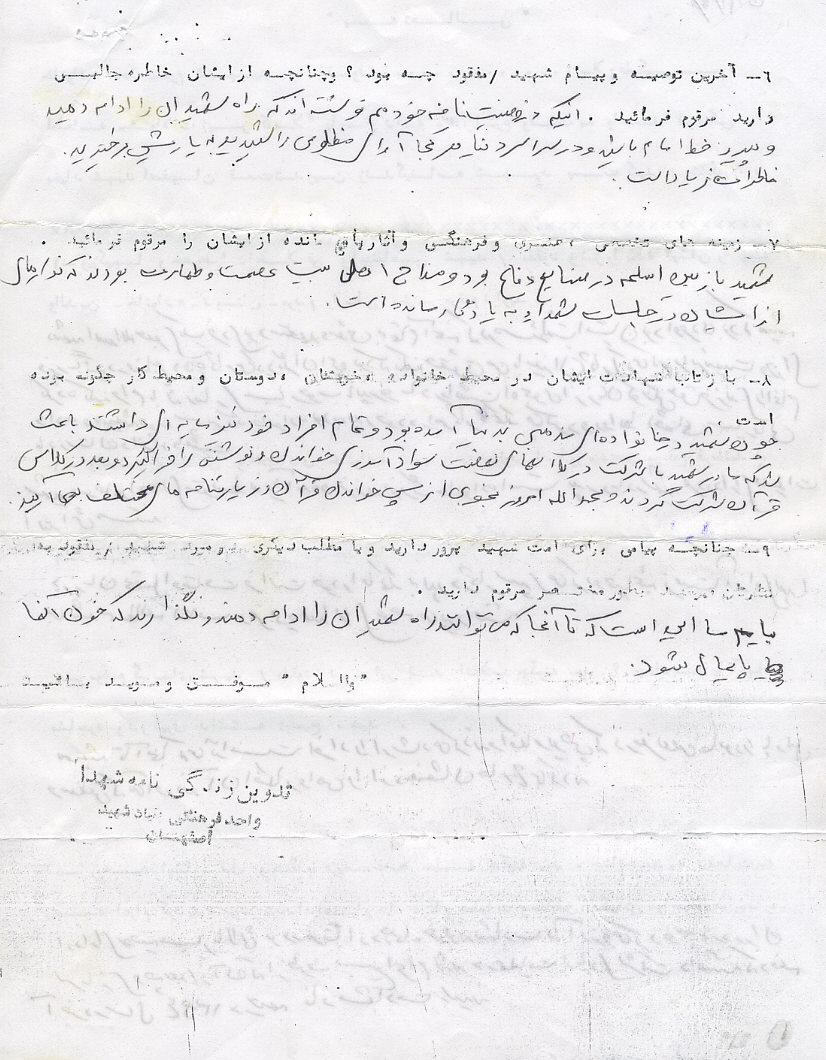 ۶ــ آخرین توصیه و پیام شهید /مفقود چه بود ؟ و چنانچه از ایشان خاطره جالبی
دارید مرقوم فرمائید . اینکه در وصیت نامه خود هم نوشته اند که راه شهیدان را ادامه دهید
و پیرو خط امام باشید و در سراسر دنیا هر کجا آوای مظلومی را شنیدید به یاریش برخیزید.
خاطرات زیاد است .
۷ــ زمینه های تخصصی ، هنری و فرهنگی و آثار باقی مانده از ایشان را مرقوم فرمائید .
شهید بازرس اسلحه در صنایع دفاع بود و مداح اهل بیت عصمت و طهارت بودند که نوارهای
از ایشان در جلسات شهدا به یادگار مانده است .
۸ــ بازتاب شهادت ایشان در محیط خانواده ،خویشان ،دوستان و محیط کار چگونه بوده
است .
چون شهید در خانواده ای مذهبی بدنیا آمده بود و تمام افراد خود نیز داشتند باعث
شد که مادر شهید با شرکت در کلاسهای نهضت سوادآموزی خواندن و نوشتن را فرا گیرد و بعد در کلاس
قرآن شرکت کردند و بحمدالله امروز بخوبی از پس خواندن قرآن و زیارتنامه های مختلف بر می آیند
۹ــ چنانچه پیامی برای امت شهید پرور دارید و یا مطلب دیگری در مورد شهید / مفقود بنظرتان
میرسد بطور مختصر مرقوم دارید .
پیام ما این است که تا آنجا که می توانند راه شهیدان را ادامه دهند و نگذارند که خون آنها
پایمال شود.
"والسلام" موفق و موید باشید
تدوین زندگی نامه شهدا
واحد فرهنگی بنیاد شهید
اصفهان